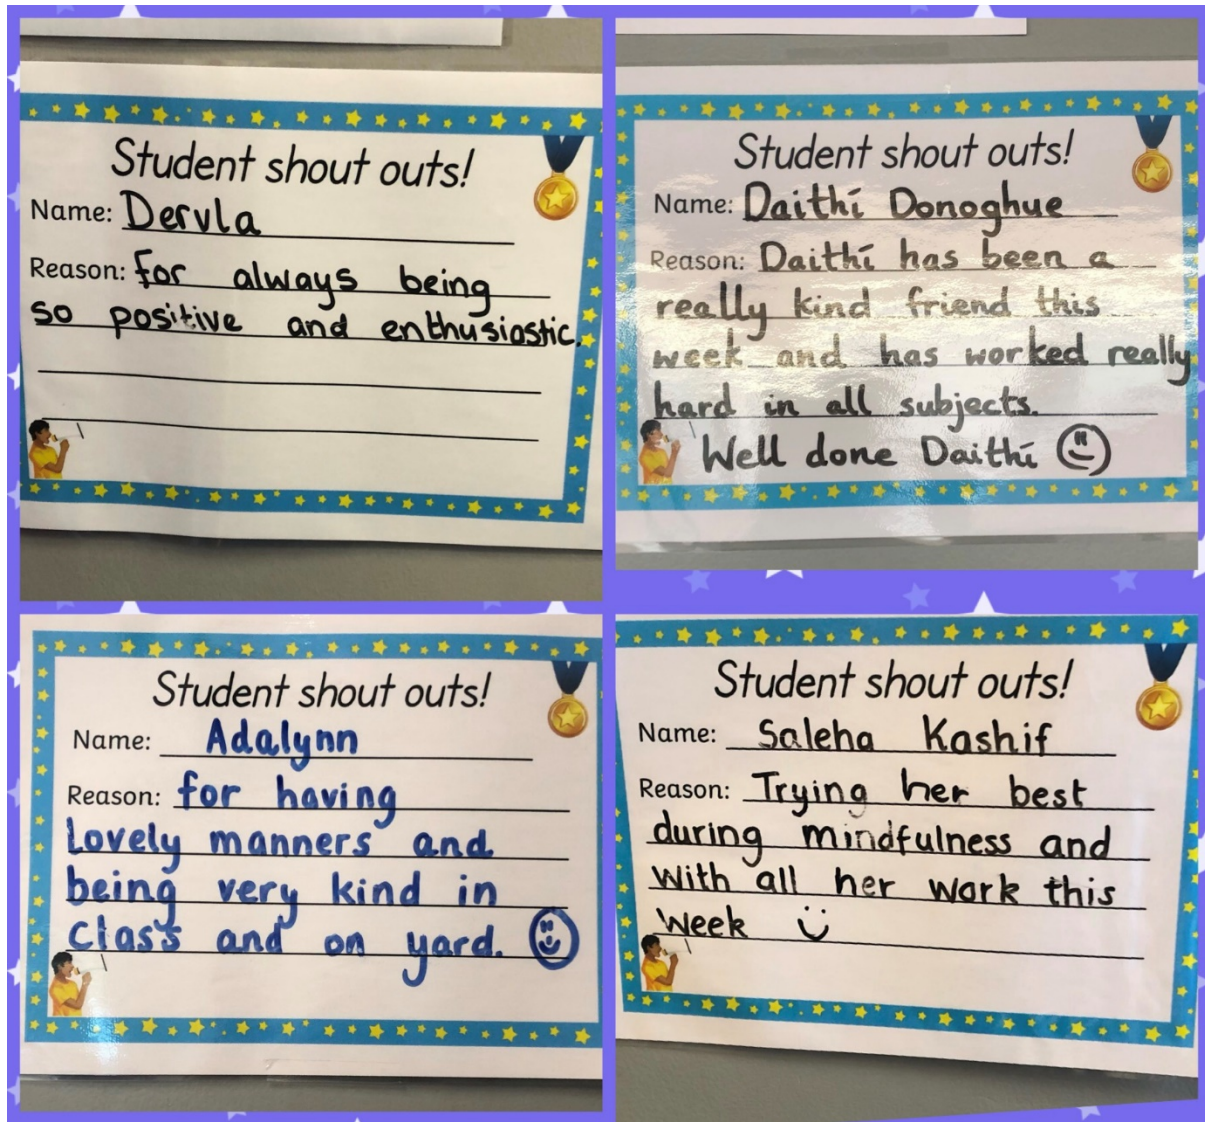 Student shout outs!
Name: Dervla
Reason: for always being
so positive and enthusiastic.
Student shout outs!
Name: Daithí Donoghue
Reason: Daithí has been a
really kind friend this
week and has worked really
hard in all subjects.
Well done Daithí
Student shout outs!
Name: Adalynn
Reason: for having
Lovely manners and
being very kind in
class and on yard.
Student shout outs!
Name: Saleha Kashif
Reason: Trying her best
during mindfulness and
with all her work this
week